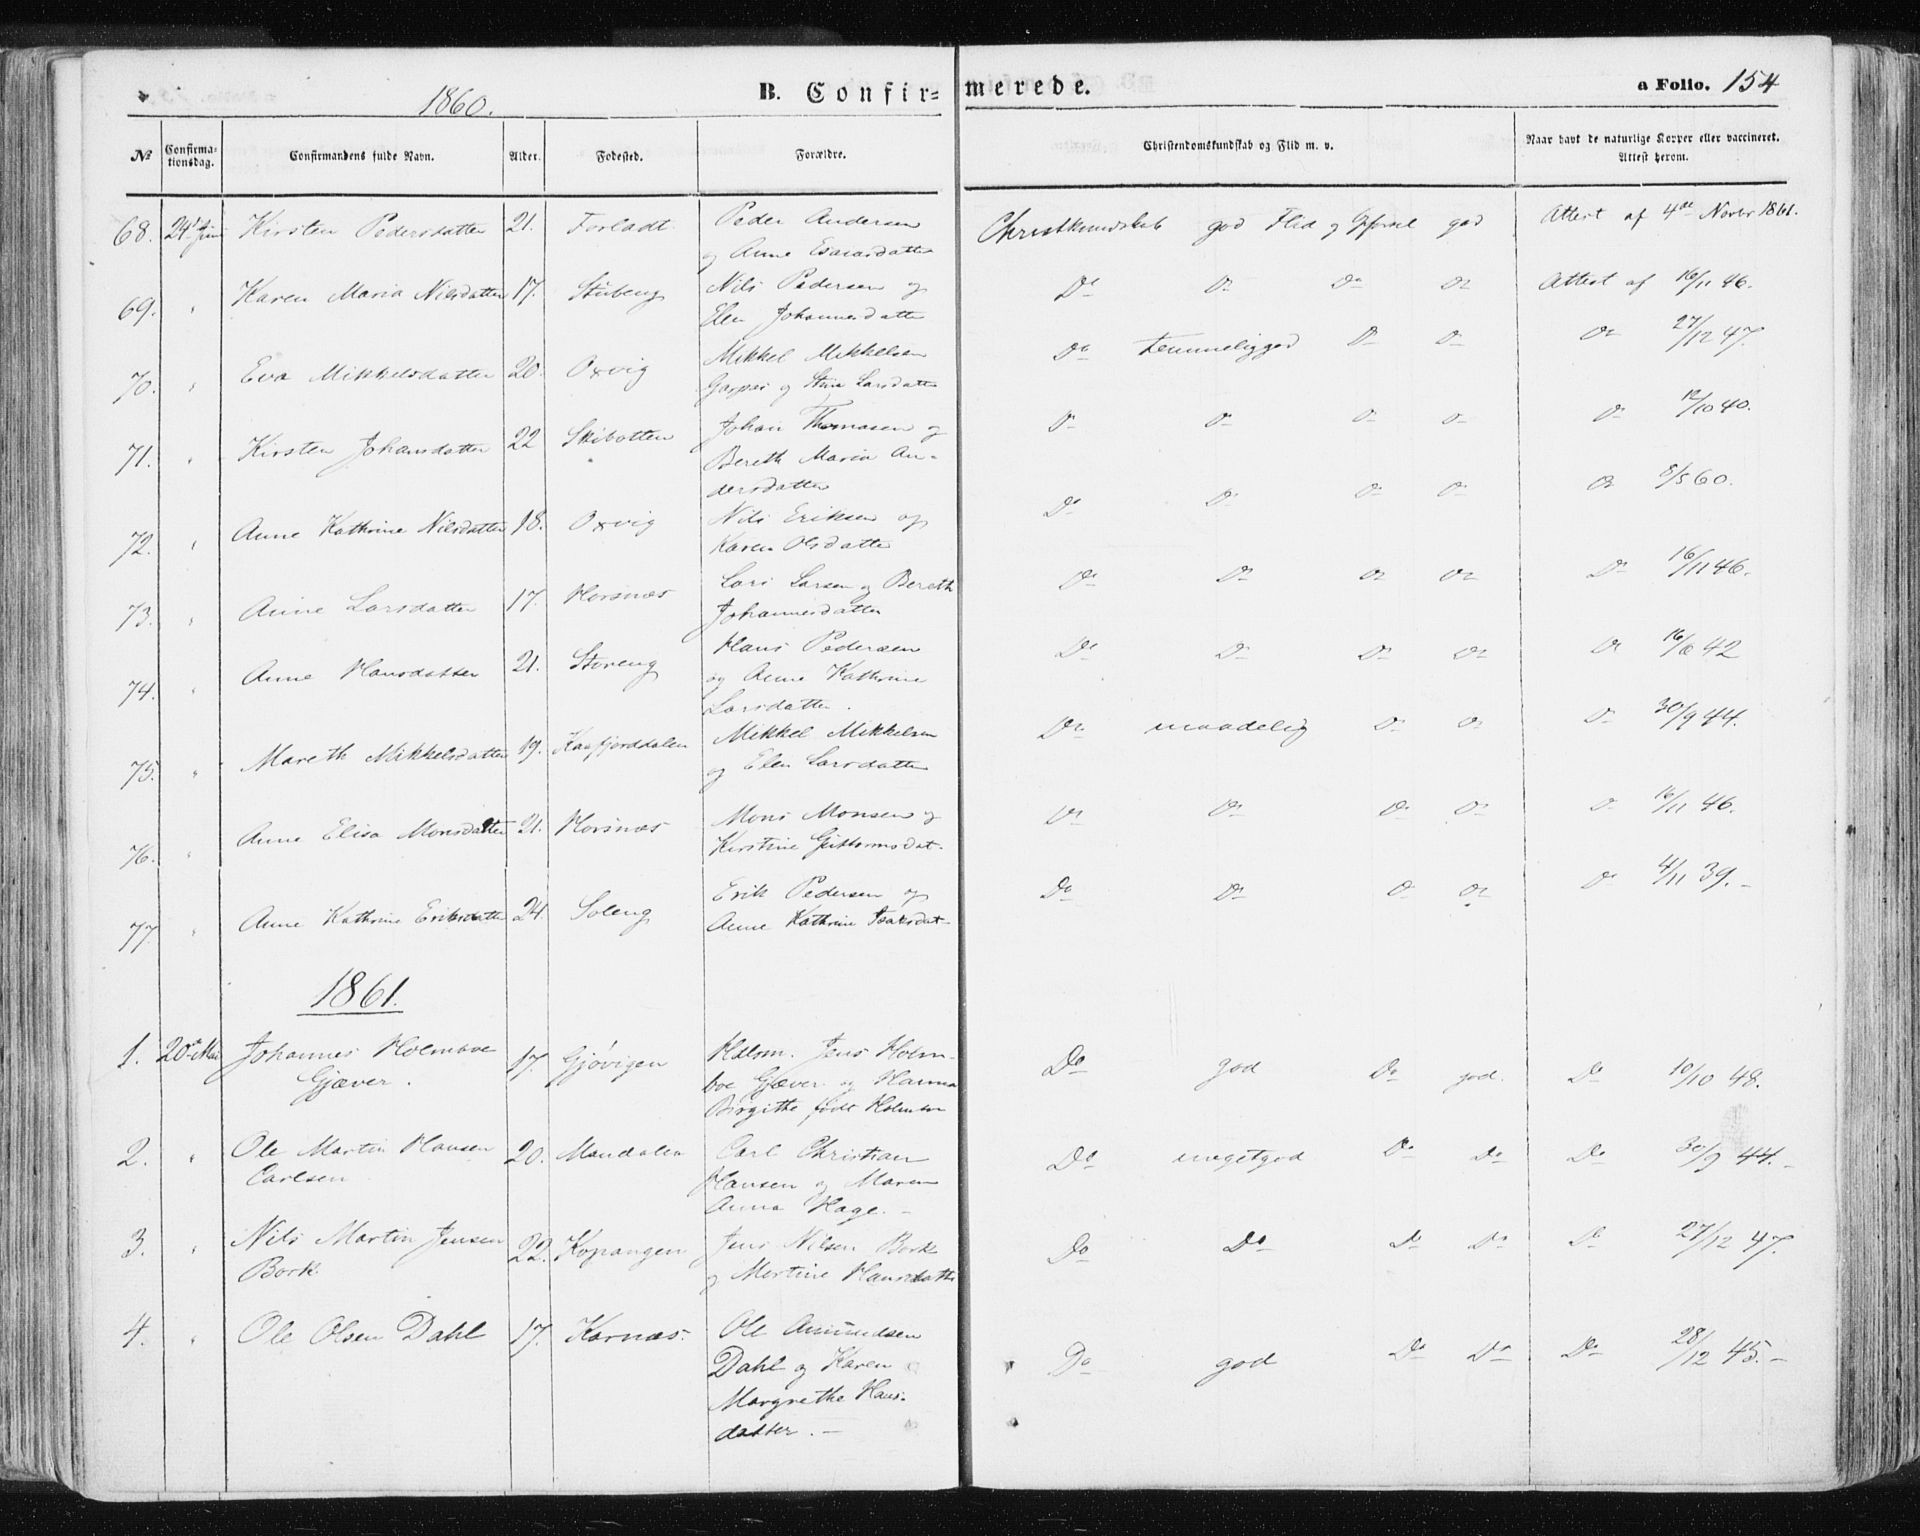 1860.
B. Confirmerede.
a Folio. 154
No Confirmationsdag. Confirmandens fulde Navn. Alder. Fødested. Forældre. Christendomskundskab og Flid m. v. Naar havt de naturlige Kopper eller vaccineret. Attest herom.
68. 24 Juni Kirsten Pedersdatter 21. Peder Andersen god Flid og god Attest af 4de Novbr 1861.
og Anne Esaiasdatter
69. " Karen Maria Nilsdatter 17. Stubeng Nils Pedersen og Do Do Do Do Attest af 16/11 46.
Elen Johannesdatter
70. " Eva Mikkelsdatter 20. Oxvig Mikkel Mikkelsen Do temmeliggod Do Do Do 27/12 47.
og Stine Larsdatter
71. " Kirsten Johansdatter 22 Skibotten Johan Thomasen og Do Do Do Do Do 12/10 40.
Bereth Maria An-
dersdatter
72. " Anne Kathrine Nilsdatter 18. Oxvig Nils Eriksen og Do Do Do Do Do 8/5 60.
Karen Olsdatter
73. " Anne Larsdatter 17. Horsnæs Lars Larsen og Bereth Do Do Do Do Do 16/11 46.
Johannesdatter
74. " Anne Hansdatter 21. Storeng Hans Pedersen Do Do Do Do Do 42
og Anne Kathrine
Larsdatter.
75. " Mareth Mikkelsdatter 19. Kaafjorddalen Mikkel Mikkelsen Do maadelig Do Do Do 30/9 44.
og Elen Larsdatter
76. " Anne Elisa Monsdatter 21. Horsnæs Mons Monsen og Do Do Do Do Do 16/11 46.
Kirstine Guttormsdat-
77. " Anne Kathrine Eriksdatter 24. Soleng Erik Pedersen og Do Do Do Do Do 4/11 39.-
Anne Kathrine Isaksdat-
1861.
1. 20de Mai Johannes Holmboe 17. Gjøvigen Jens Holm- Do god Do god. Do 10/10 48.
Gjæver. boe Gjæver og Hanna
Birgithe, født Holmboe
2. " Ole Martin Hansen 20. Mandalen Carl Christian Do megetgod Do Do Do 30/9 44.-
Carlsen Hansen og Maren
Anna Hage.-
3. " Nils Martin Jensen 22. Kopangen Jens Nilsen Bork Do Do Do Do Do 27/12 47.
Bork og Martine Hansdatter
4. " Ole Olsen Dahl 17. Karnæs. Ole Amundsen Do god Do Do Do 28/12 45.-
Dahl og Karen
Margrethe Hans-
datter.-